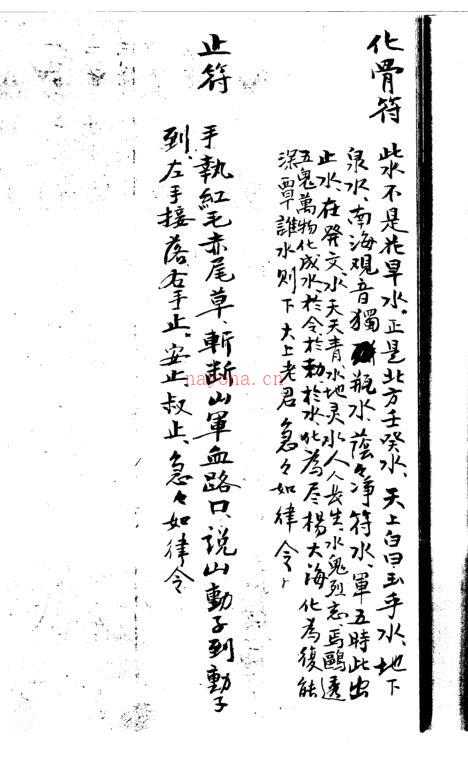 化骨符
此水不是花旱水。正是北方壬癸水、天上白曰玉手水、地下
泉水、南海观音獨瓶水、蔭々净符水、軍五時此出
止水、在癸文水天天青水、地灵水人人長生、水鬼烈忘、焉鷗透
五鬼萬物化成水、於令於勅於水、化為尽楊大海化為復能
深覃誰水則下大上老君急々如律令、
止符
手執紅毛赤尾草、斬断山軍血路口、説山動子到動子
到、左手接落右手止。安止、叔止、急々如律令
nayona.cn